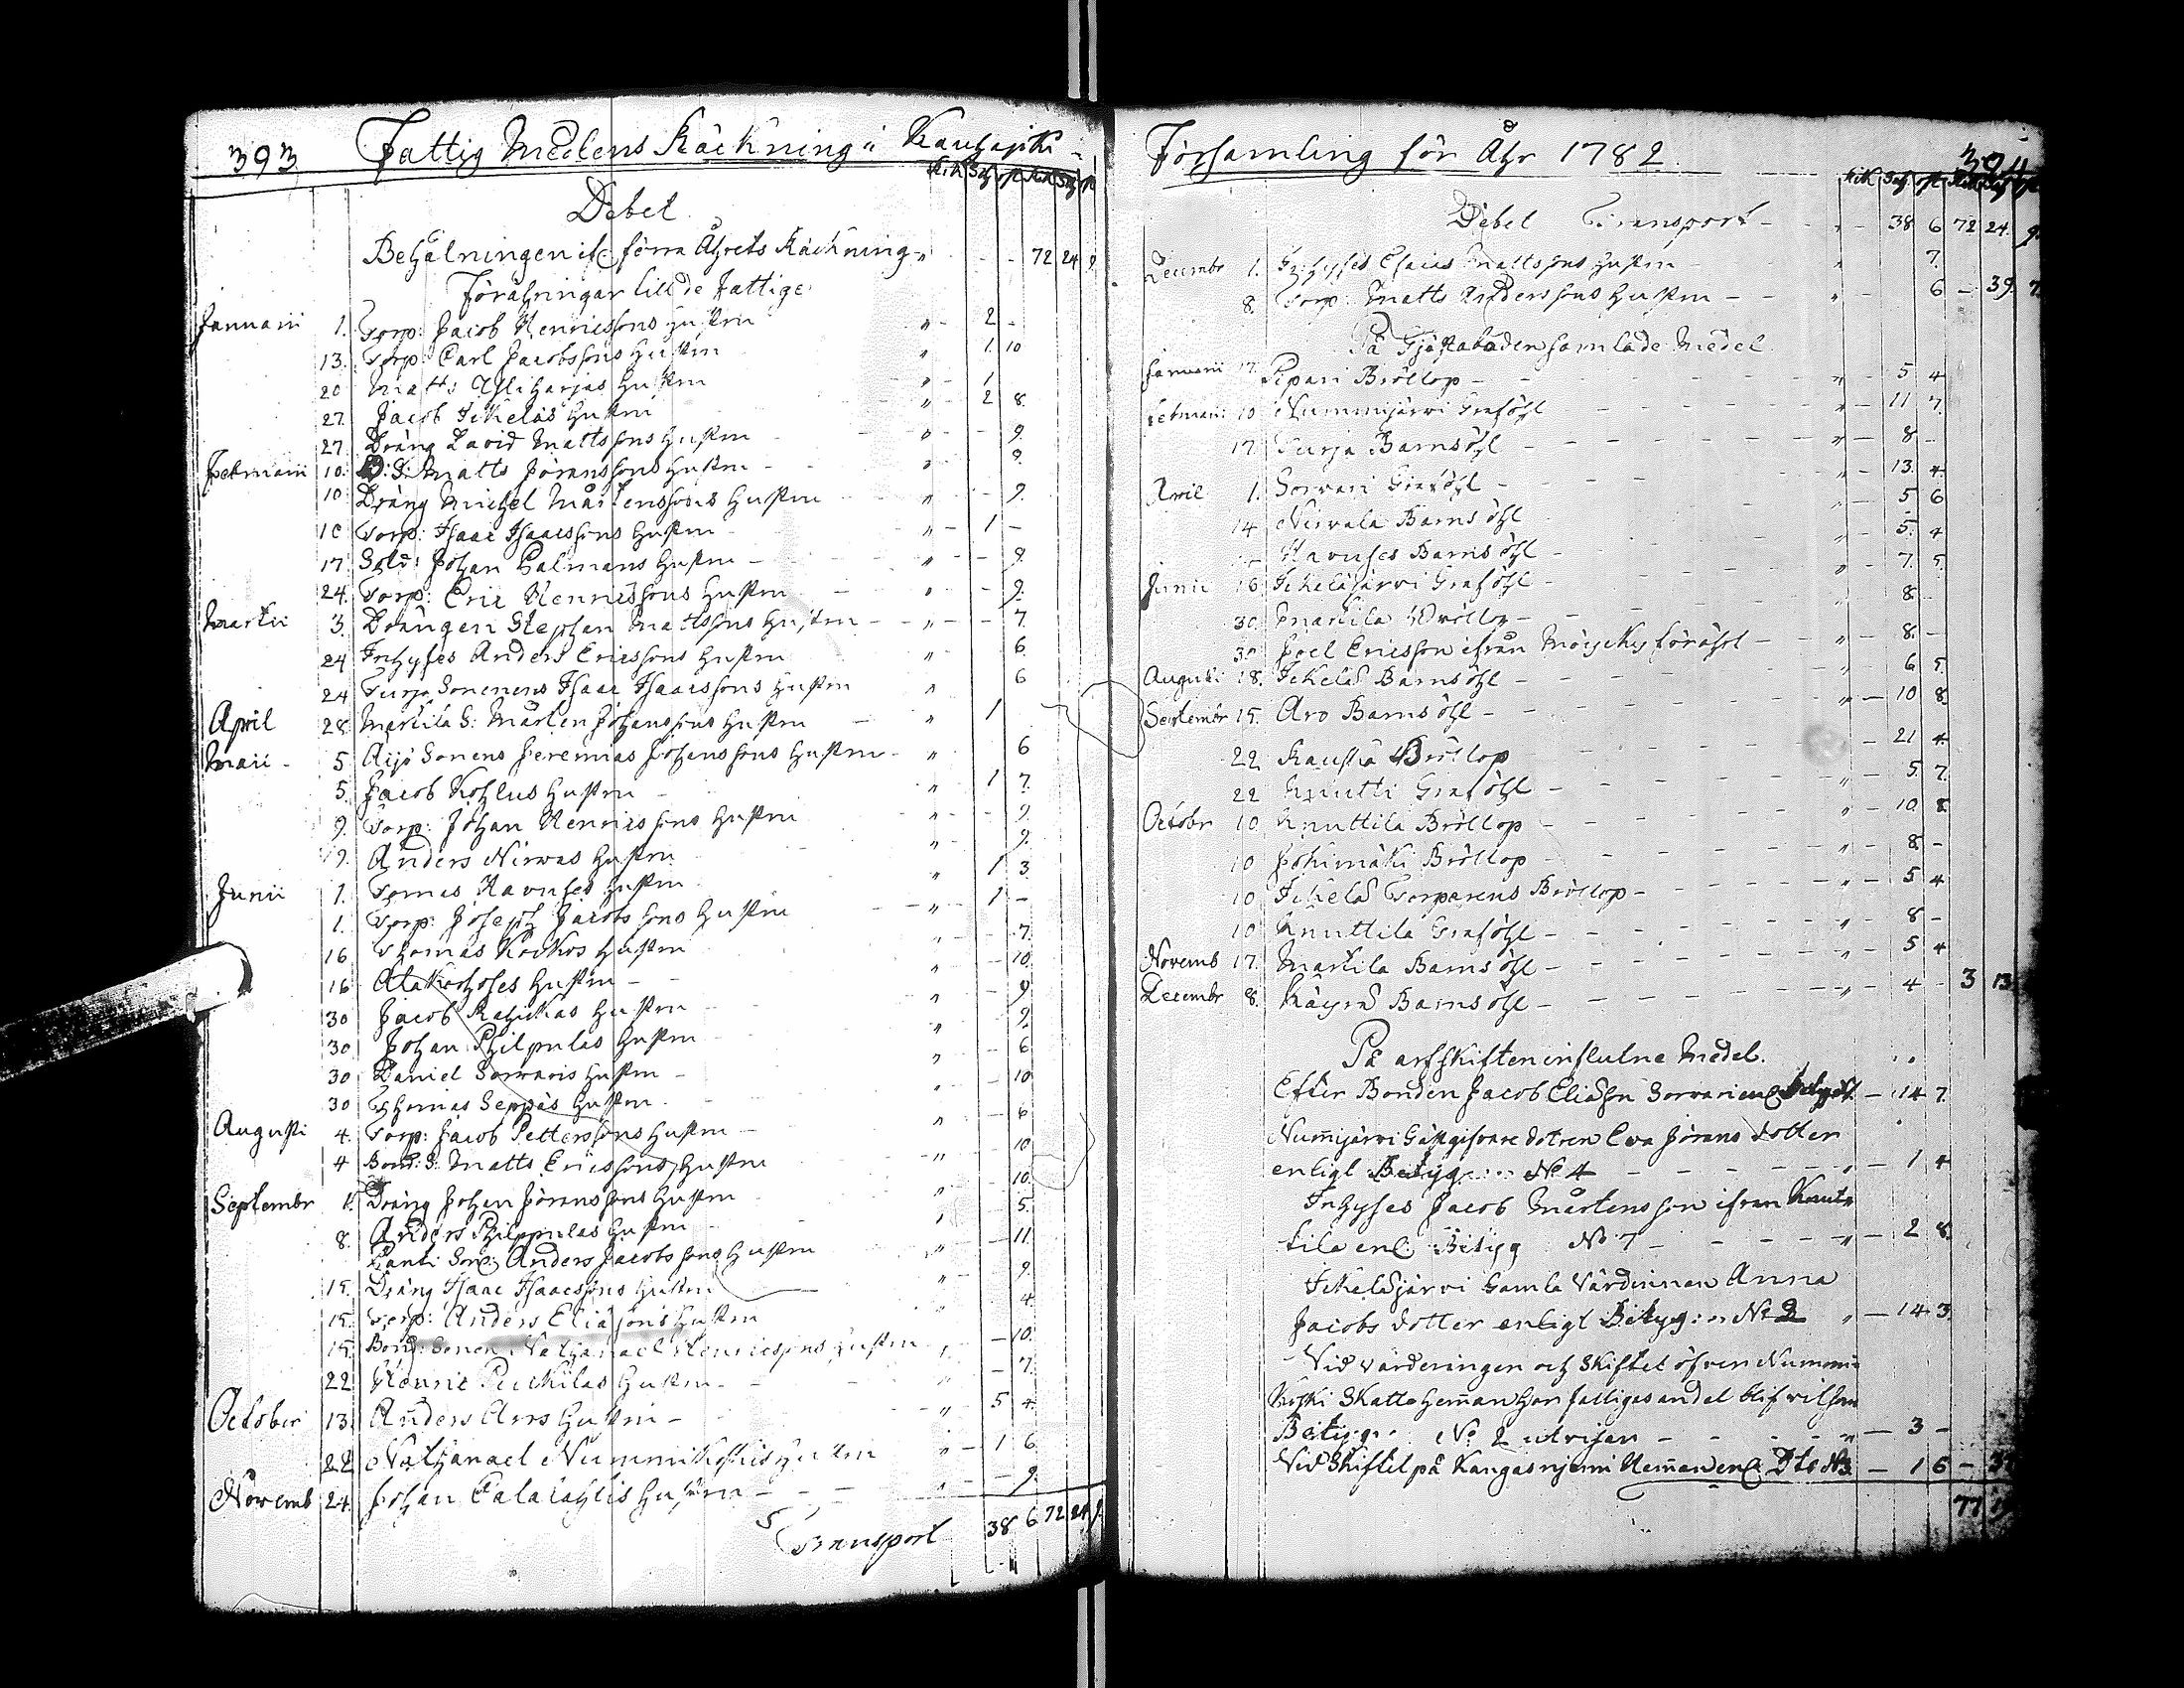 393 Fattig Medlens Räckning i Kauhajoki
Rdr Sch rst Rdr Sch rst
Debet
Behålningen ifr. förra Åhrets Räckning " - - 72 24 9.
Föräringar till de Fattige
Januarii 1. Torp: Jacob Henricssons Hustru " - 2 -
13. Torp: Carl Jacobssons Hustru " 1. 10
20 Matts Yliharjas Hustru " - 1
27. Jacob Ikkeläs Hustru " 2 8.
27 Dräng David Mattssons Hustru " - - 9.
Februarii 10. B: S: Matts Jöranssons Hustru - " 9.
10 Dräng Michel Mårtenssons Hustru " - 9.
10 Torp: Isaac Isaacssons Hustru - " - 1 -
17 Sold: Johan Palmans Hustru - " - - 9.
24. Torp: Eric Henricssons Hustru " - 9.
Martii 3. Drängen Stephan Mattssons Hustru - - " - - 7.
24 Inhyses Anders Ericssons Hustru " 6.
24 Turja Sonenens Isaac Isaacssons Hustru " 6
April 28 Marttila S: Mårten Johanssons Hustru - " 1
Maii - 5. Äijö Sonens Jeremias Johanssons Hustru - " 6
5. Jacob Kohlus Hustru - " 1 7.
9. Torp: Johan Henricssons Hustru " - - 9.
9. Anders Nirvas Hustru " - 9.
Junii 1. Tomas Havuses Hustru " 1 3.
1. Torp: Joseph Jacobssons Hustru - - " - 1 -
16. Thomas Koskos Hustru " - - 7.
16 Ala Hustru - - " - 10.
30 Jacob Hustru " - 9
30. Johan Philpulas Hustru " 9.
30 Daniel Sorvaris Hustru - " - 6
30 Thomas Seppäs Hustru - " - 10
Augusti 4. Torp: Jacob Petterssons Hustru - " - 6
4 Bond: S: Matts Ericssons Hustru " 10
Septembr 1. Dräng Johan Jöranssons Hustru " 10.
8. Anders Philppulas Hustru " 5.
Panti Son: Anders Jacobssons Hustru " - 11
15. Dräng Isaac Isaacssons Hustru " - 9.
15. Torp: Anders Eliassons Hustru " 4.
15. Bond: Sonen Nathanael Henricssons Hustru " - 10.
22 Henric Hustru - - " - 7.
October 13. Anders Aros Hustru - - " 5 4.
22 Nathanael Nummikoskis Hustru " - 1 6.
Novemb 24. Johan Hustru - - - " - - 9.
Transport 38 6 72 24 9.
Församling för Åhr 1782. 394
Rdr Sch rst Rdr Sch rst
Debet Transport - - " - 38 6 72 24. 9.
Decembr 1. Inhyses Esaias Mattssons Hustru - " 7.
8. Torp: Matts Anderssons Hustru - - " - 6 - 39. 7.
På Gjästabuden samlade Medel
Januarii 17. Pipari Bröllop - - - " - 5 4
Februari 10. Nummijärvi Graföhl - - - " - 11 7.
17. Turja Barnsöhl - - - " - 8 -
April 1. Sorvari Graföhl - - - " - 13. 4.
14 Nirvala Barnsöhl " - 5 6
Havuses Barnsöhl - " - 5. 4
Junii 16 Ikkeläjärvi Graföhl - " - 7. 5.
30. Marttila Bröllop - - " 8. -
30 Joel Ericsson ifrån föräht - - " - 8. -
Augusti 18. Ikkelä Barnsöhl - - " 6 5.
Septembr 15. Aro Barnsöhl - - - " - 10 8.
22 Rauska Bröllop - - - 21 4.
22 Knutti Graföhl - - " - 5. 7.
Octobr 10. Knuttila Bröllop - - - " - 10. 8.
10 Johimäki Bröllop - - - " - 8. -
10 Ikkelä Torparens Bröllop - - - " - 5 4
10 Knuttila Graföhl - - - " 8 -
Novemb 17. Marttila Barnsöhl - - - " - 5 4
Decembr 8. Käyrä Barnsöhl - - - " - 4 - 3 13
På arfskiften influtne Medel.
Efter Bonden Jacob Eliæson Sorvari enl. Betyg № 1. - 14 7.
Nummijärvi Gästgifvare dotren Eva Jörans dotter
enligt Betyg № 4 - - - " - 1 4
Inhyses Jacob Mårtensson ifrån Knut-
tila enl: Betyg № 7 - - - " - 2 8.
Ikkeläjärvi Gamla Värdinnan Anna
Jacobs dotter enligt Betyg: № 9 " - 14 3.
Vid värderingen och Skiftet öfver Nummi-
koski Skatte Hemman har fattigas andel blifvit som
Betyg № 2 utvisar - - - " - 3 -
Vid Skiftet på Kangasniemi Hemman enl: Dto № 3 - 1 6 - 37
77 19